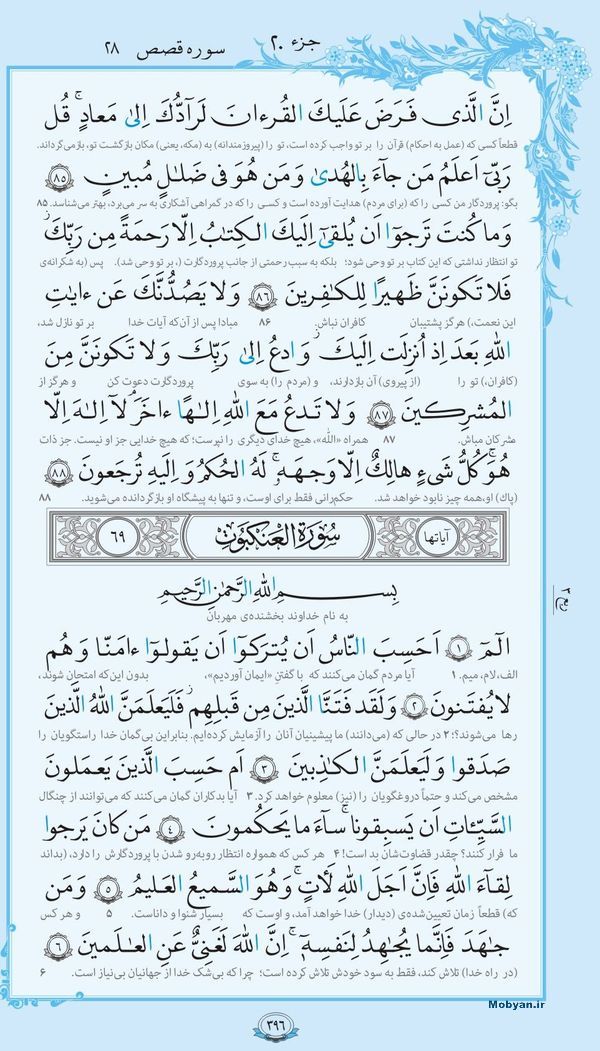 جزء ۲۰
سوره قصص ۲۸
اِنَّ الَّذی فَرَضَ عَلَیكَ القُرءانَ لَرآدُّكَ اِلیٰ مَعادٍ ۚ قُل
قطعاً کسی که (عمل به احکام) قرآن را بر تو واجب کرده است، تو را (پیروزمندانه) به (مکه، یعنی) مکان بازگشت تو، بازمی‌گرداند.
رَبّیٓ اَعلَمُ مَن جآءَ بِالهُدیٰ وَ مَن هُوَ فی ضَلٰلٍ مُبینٍ ۸۵
بگو: پروردگار من کسی را که (برای مردم) هدایت آورده است و کسی را که در گمراهی آشکاری به سر می‌برد، بهتر می‌شناسد. ۸۵
وَ ما كُنتَ تَرجوٓا اَن یُلقیٰٓ اِلَیكَ الكِتٰبُ اِلّا رَحمَةً مِن رَبِّكَ ۖ
تو انتظار نداشتی که این کتاب بر تو وحی شود؛ بلکه به سبب رحمتی از جانب پروردگارت (، بر تو وحی شد). پس (به شکرانه‌ی
فَلا تَكونَنَّ ظَهیرًا لِلكٰفِرینَ ۸۶ وَ لا یَصُدُّنَّكَ عَن ءایٰتِ
این نعمت،) هرگز پشتیبان کافران نباش. ۸۶ مبادا پس از آن‌که آیات خدا بر تو نازل شد،
اللهِ بَعدَ اِذ اُنزِلَت اِلَیكَ ۖ وَ ادعُ اِلیٰ رَبِّكَ وَ لا تَكونَنَّ مِنَ
(کافران،) تو را (از پیروی) آن بازدارند، و (مردم را) به سوی پروردگارت دعوت کن و هرگز از
المُشرِكینَ ۸۷ وَ لا تَدعُ مَعَ اللهِ اِلٰهًا ءاخَرَ ۘ لآ اِلٰهَ اِلّا
مشرکان مباش. ۸۷ همراه «الله»، هیچ خدای دیگری را نپرست؛ که هیچ خدایی جز او نیست. جز ذات
هُوَ ۚ كُلُّ شَیءٍ هالِكٌ اِلّا وَجهَهٗ ۚ لَهُ الحُكمُ وَ اِلَیهِ تُرجَعونَ ۸۸
(پاک) او، همه چیز نابود خواهد شد. حکم‌رانی فقط برای اوست، و تنها به پیشگاه او بازگردانده می‌شوید. ۸۸
آیاتها
سُورَةُ العَنكَبوتِ
۶۹
بِسمِ اللهِ الرَّحمٰنِ الرَّحیمِ
به نام خداوند بخشنده‌ی مهربان
الٓمٓ ۱ اَحَسِبَ النّاسُ اَن یُترَكوٓا اَن یَقولوٓا ءامَنّا وَ هُم
الف، لام، میم. ۱ آیا مردم گمان می‌کنند که با گفتنِ «ایمان آوردیم»، بدون این‌که امتحان شوند،
لا یُفتَنونَ ۲ وَ لَقَد فَتَنَّا الَّذینَ مِن قَبلِهِم ۖ فَلَیَعلَمَنَّ اللهُ الَّذینَ
رها می‌شوند؟! ۲ در حالی که (می‌دانند) ما پیشینیان آنان را آزمایش کرده‌ایم. بنابراین بی‌گمان خدا راستگویان را
صَدَقوا وَ لَیَعلَمَنَّ الكٰذِبینَ ۳ اَم حَسِبَ الَّذینَ یَعمَلونَ
مشخص می‌کند و حتماً دروغگویان را (نیز) معلوم خواهد کرد. ۳ آیا بدکاران گمان می‌کنند که می‌توانند از چنگال
السَّیِّئاتِ اَن یَسبِقونا ۚ سآءَ ما یَحكُمونَ ۴ مَن كانَ یَرجوا
ما فرار کنند؟ چقدر قضاوتشان بد است! ۴ هر کس که همواره انتظار روبه‌رو شدن با پروردگارش را دارد، (بداند
لِقآءَ اللهِ فَاِنَّ اَجَلَ اللهِ لَأٰتٍ ۚ وَ هُوَ السَّمیعُ العَلیمُ ۵ وَ مَن
که) قطعاً زمان تعیین‌شده‌ی (دیدار) خدا خواهد آمد، و اوست که بسیار شنوا و داناست. ۵ و هر کس
جٰهَدَ فَاِنَّما یُجٰهِدُ لِنَفسِهٖٓ ۚ اِنَّ اللهَ لَغَنیٌّ عَنِ العٰلَمینَ ۶
(در راه خدا) تلاش کند، فقط به سود خودش تلاش کرده است؛ چرا که بی‌شک خدا از جهانیان بی‌نیاز است. ۶
۳۹۶
Mobyan.ir